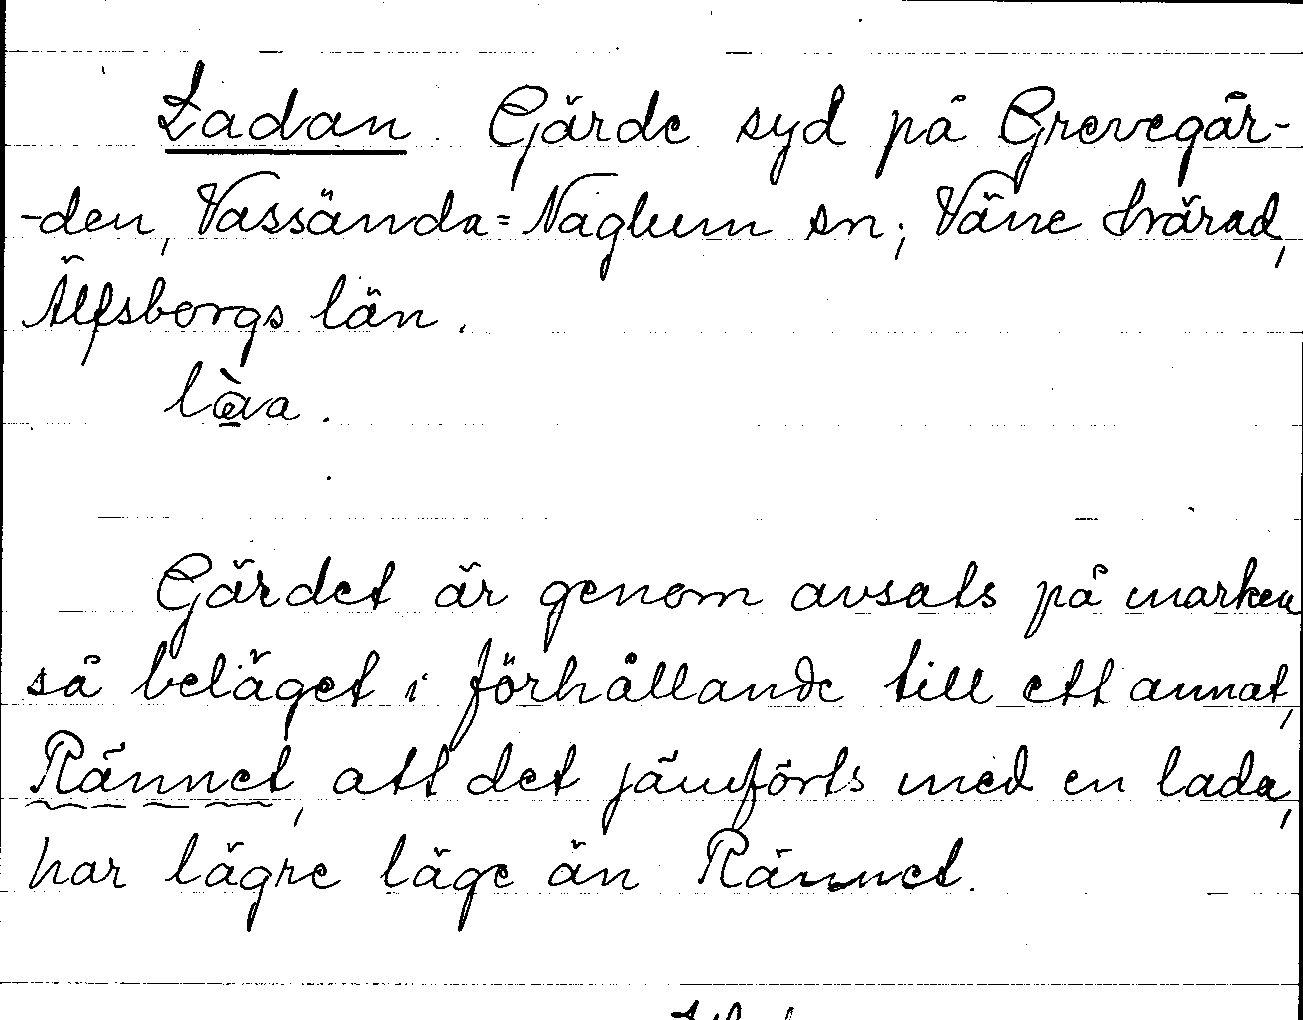 Ladan. Gärde syd på Grevegår-
-den, Vassända=Naglum sn; Väne härad,
Älfsborgs län.
làva.
Gärdet är genom avsats på marken
så beläget i förhållande till ett annat,
Rännet, att det jämförts med en lada,
har lägre läge än Rännet.